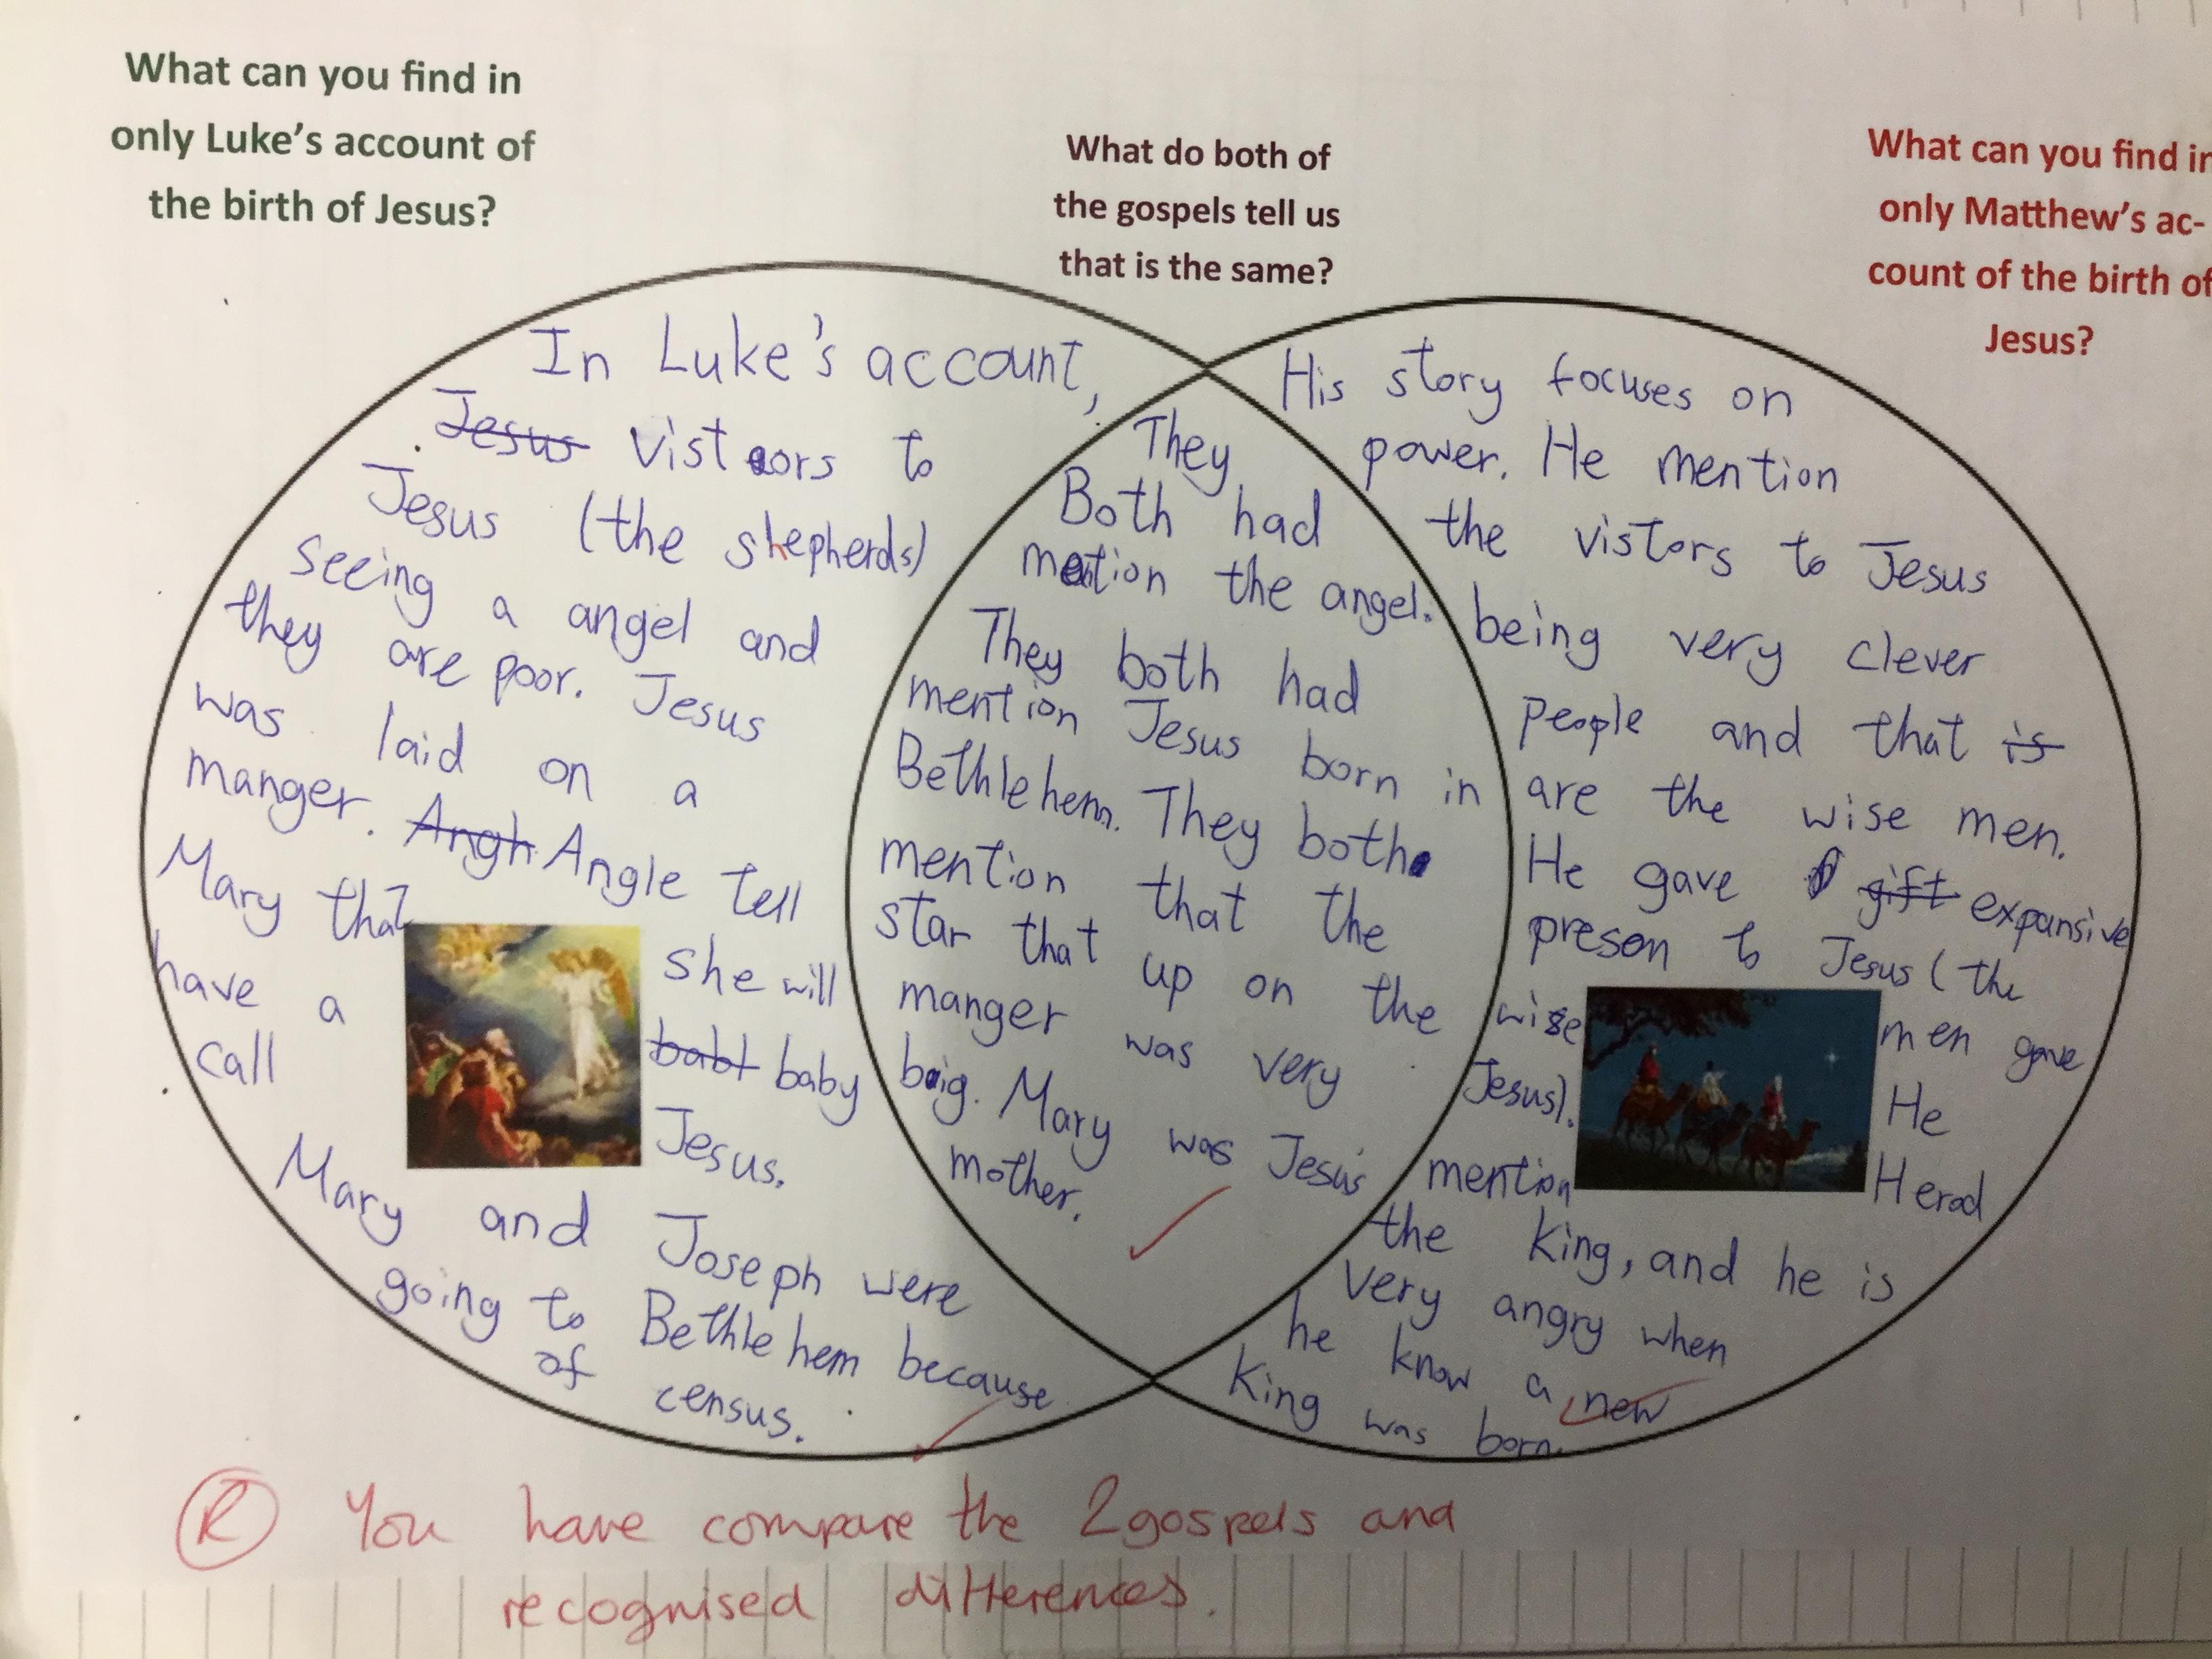 What can you find in
only Luke's account of
the birth of Jesus?
What do both of
the gospels tell us
that is the same?
What can you find in
only Matthew's ac-
count of the birth of
Jesus?
In Luke's account,
Jesus vistors to
Jesus (the shepherds)
seeing a angel and
they are poor. Jesus
was laid on a
manger. Angh Angle tell
Mary that she will
have a babt baby
call Jesus.
Mary and Joseph were
going to Bethlehem because
of census.
They
Both had
mention the angel.
They both had
mention Jesus born in
Bethlehem. They both
mention that the
star that up on the
manger was very
big. Mary was Jesus'
mother.
His story focuses on
power. He mention
the vistors to Jesus
being very clever
people and that is
are the wise men.
He gave gift expansive
preson to Jesus (the
wise men gave
Jesus). He
mention Herod
the king, and he is
very angry when
he know a new
king was born.
R You have compare the 2 gospels and
recognised differences.